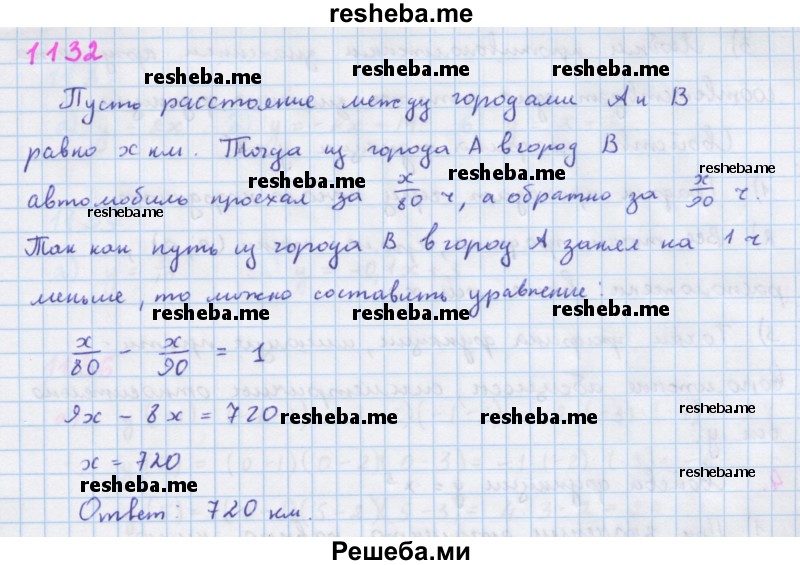 resheba.me
1132
resheba.me resheba.me resheba.me
Пусть расстояние между городами А и В
равно x км. Тогда из города А в город В
resheba.me resheba.me resheba.me
автомобиль проехал за x/80 ч, а обратно за x/90 ч.
resheba.me
Так как путь из города В в город А занял на 1 ч
меньше, то можно составить уравнение:
resheba.me resheba.me resheba.me
x/80 - x/90 = 1
9x - 8x = 720
resheba.me resheba.me resheba.me
x = 720
resheba.me resheba.me
Ответ: 720 км.
Решеба.ми